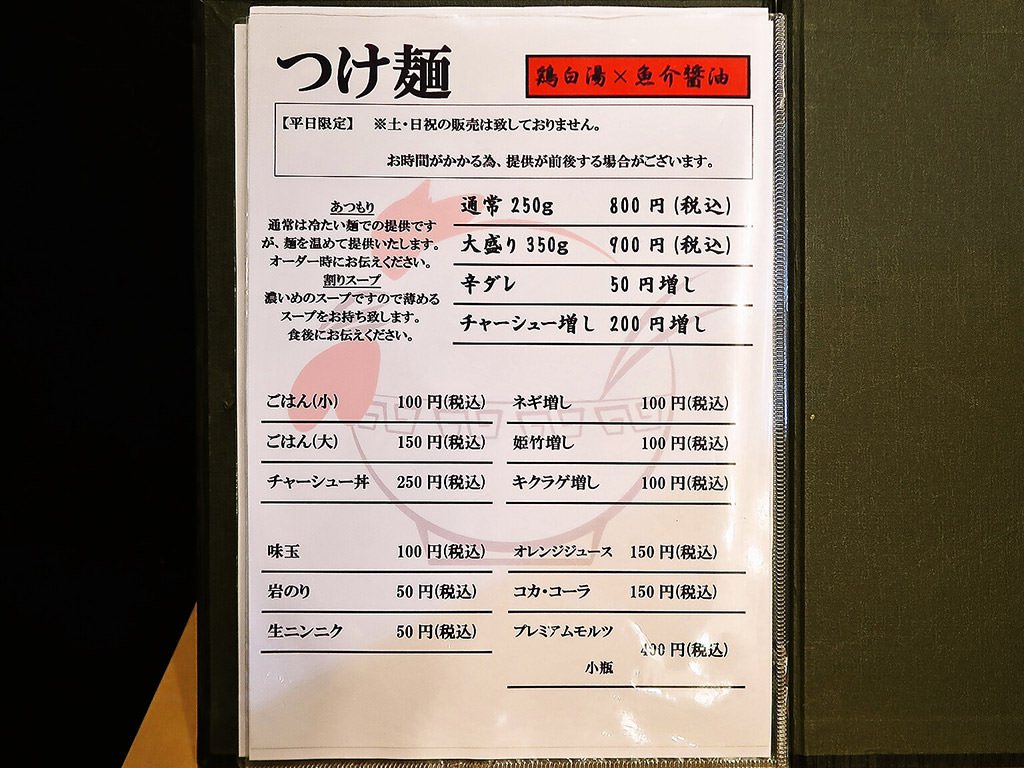 つけ麺
鶏白湯×魚介醤油
【平日限定】 ※土・日祝の販売は致しておりません。
お時間がかかる為、提供が前後する場合がございます。
あつもり
通常は冷たい麺での提供です
が、麺を温めて提供いたします。
オーダー時にお伝えください。
割りスープ
濃いめのスープですので薄める
スープをお持ち致します。
食後にお伝えください。
通常 250g 800 円 (税込)
大盛り 350g 900 円 (税込)
辛ダレ 50 円増し
チャーシュー増し 200 円増し
ごはん(小) 100 円(税込)
ごはん(大) 150 円(税込)
チャーシュー丼 250 円(税込)
ネギ増し 100 円(税込)
姫竹増し 100 円(税込)
キクラゲ増し 100 円(税込)
味玉 100 円(税込)
岩のり 50 円(税込)
生ニンニク 50 円(税込)
オレンジジュース 150 円(税込)
コカ・コーラ 150 円(税込)
プレミアムモルツ
小瓶 400 円(税込)